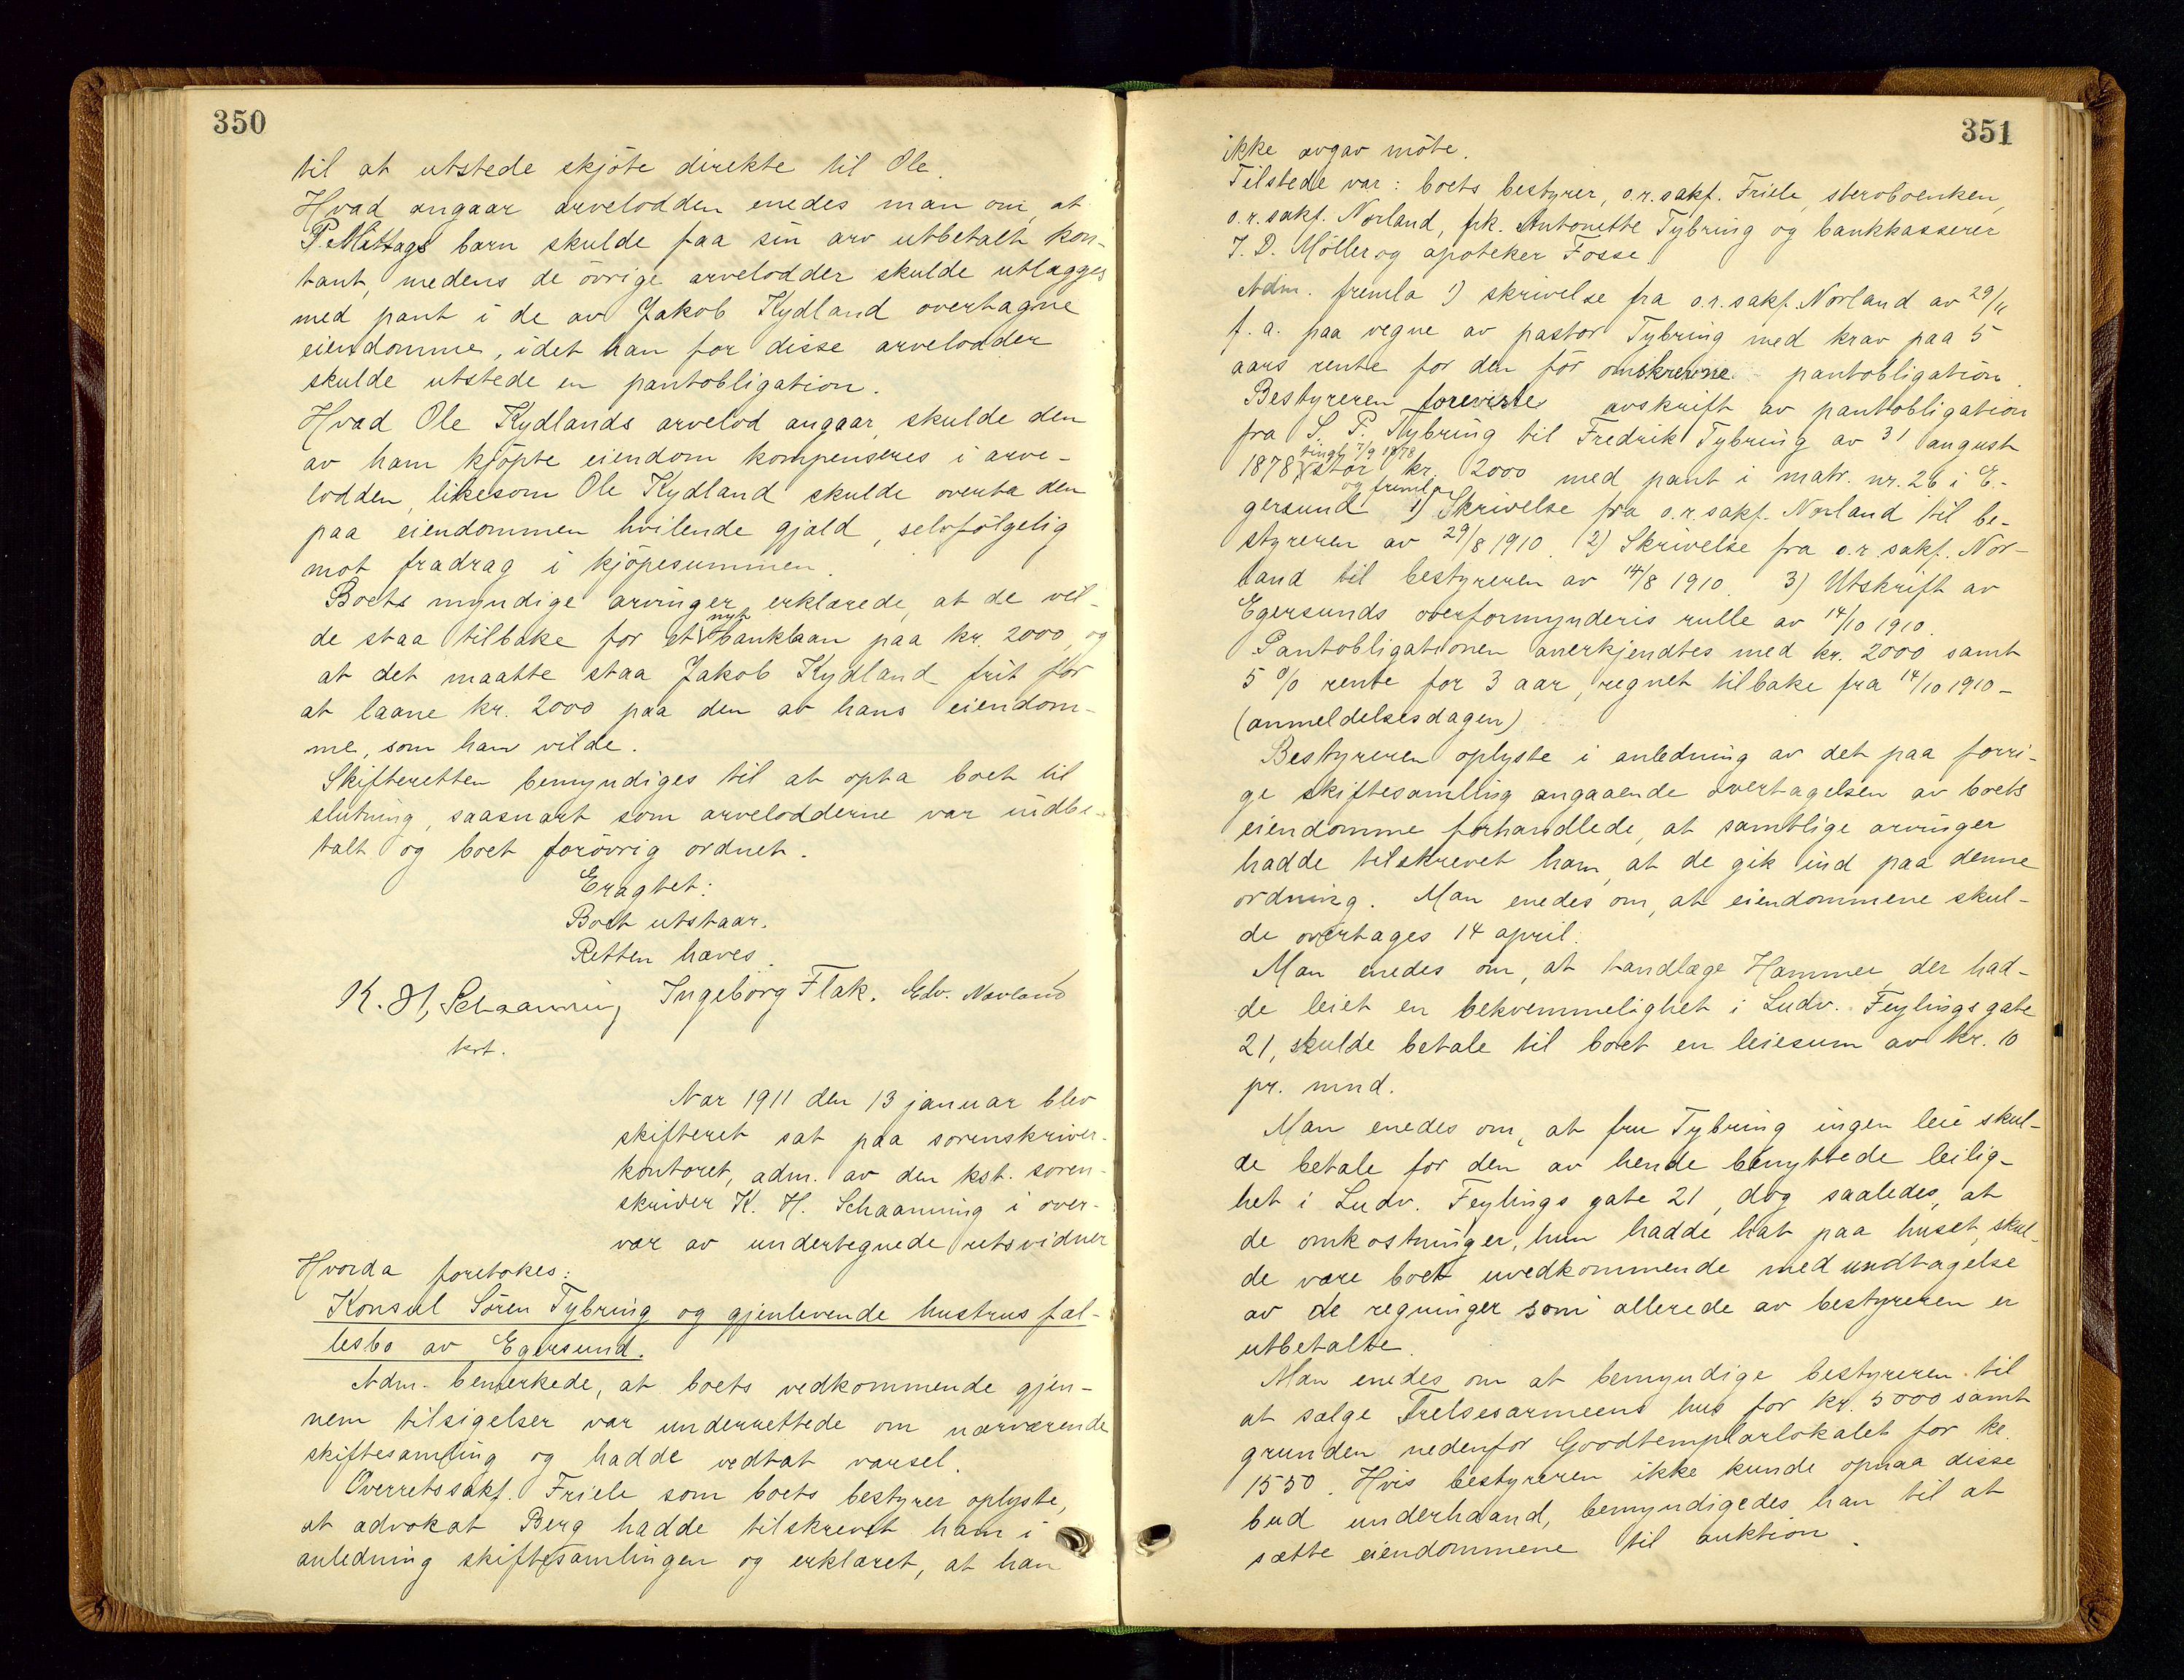 350
til at utstede skjöte direkte til Ole.
Hvad angaar arvelodden enedes man om, at
P. Mattags barn skulde faa sin arv utbetalt kon-
tant, medens de övrige arvelodder skulde utlægges
med pant i de av Jakob Kydland overtagne
eiendomme, idet han for disse arvelodder
skulde utstede en pantobligation.
Hvad Ole Kydlands arvelod angaar, skulde den
av ham kjöpte eiendom kompenseres i arve-
lodden, likesom Ole Kydland skulde overta den
paa eiendommen hvilende gjæld, selvfölgelig
mot fradrag i kjöpesummen.
Boets myndige arvinger erklærede, at de vil-
nyt
de staa tilbake for et banklaan paa kr. 2000, og
at det maatte staa Jakob Kydland frit for
at laane kr. 2000 paa den av hans eiendom-
me, som han vilde.
Skifteretten bemyndiges til at opta boet til
slutning, saasnart som arvelodderne var indbe-
talt og boet forövrig ordnet.
Eragtet:
Boet utstaar.
Retten hæves.
K. H. Schaanning Ingeborg Flak. Edv. Norland
kst.
Aar 1911 den 13 januar blev
skifteret sat paa sorenskriver-
kontoret, adm. av den kst. soren-
skriver K. H. Schaanning i over-
vær av undertegnede retsvidner
Hvorda foretokes:
Konsul Sören Tybring og gjenlevende hustrus fæl-
lesbo av Egersund.
Adm. bemerkede, at boets vedkommende gjen-
nem tilsigelser var underrettede om nærværende
skiftesamling og hadde vedtat varsel.
Overretssakf. Friele som boets bestyrer oplyste,
at advokat Berg hadde tilskrevet ham i
anledning skiftesamlingen og erklæret, at han
351
ikke avgav möte.
Tilstede var: boets bestyrer, o.r.sakf. Friele, sterboenken,
o.r.sakf. Norland, frk. Antonette Tybring og bankkasserer
J. D. Möller og apoteker Fosse
Adm. fremla 1) skrivelse fra o.r.sakf. Norland av 29/11
f. a. paa vegne av pastor Tybring med krav paa 5
aars rente for den för omskrevne pantobligation.
Bestyreren foreviste avskrift av pantobligation
fra S. P. Tybring til Fredrik Tybring av 31 august
tingl. 7/9 1878
1878, stor kr. 2000 med pant i matr. nr. 26 i E-
og fremla
gersund 1) Skrivelse fra o.r.sakf. Norland til be-
styreren av 29/8 1910. 2) Skrivelse fra o.r.sakf. Nor-
land til bestyreren av 14/8 1910. 3) Utskrift av
Egersunds overformynderis rulle av 14/10 1910.
Pantobligationen anerkjendtes med kr. 2000 samt
5 % rente for 3 aar, regnet tilbake fra 14/10 1910 -
(anmeldelsesdagen)
Bestyreren oplyste i anledning av det paa forri-
ge skiftesamling angaaende overtagelsen av boets
eiendomme forhandlede, at samtlige arvinger
hadde tilskrevet ham, at de gik ind paa denne
ordning. Man enedes om, at eiendommene skul-
de overtages 14 april.
Man enedes om, at tandlæge Hammer, der had-
de leiet en bekvemmelighet i Ludv. Feylings gate
21, skulde betale til boet en leiesum av kr. 10
pr. mnd.
Man enedes om, at fru Tybring ingen leie skul-
de betale for den av hende benyttede leilig-
het i Ludv. Feylings gate 21, dog saaledes, at
de omkostninger, hun hadde hat paa huset, skul-
de være boet uvedkommende med undtagelse
av de regninger som allerede av bestyreren er
utbetalte.
Man enedes om at bemyndige bestyreren til
at sælge Frelsesarmeens hus for kr. 5000 samt
grunden nedenfor Goodtemplarlokalet for kr.
1550. Hvis bestyreren ikke kunde opnaa disse
bud underhaand, bemyndigedes han til at
sætte eiendommene til auktion.